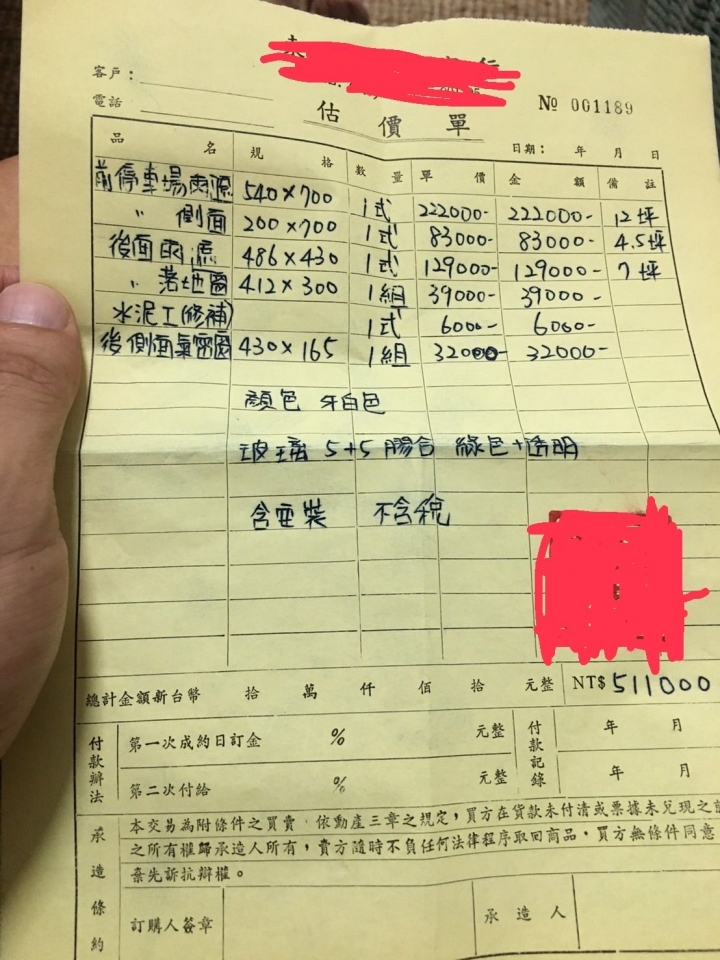 客戶:
電話
№ 001189
估價單
日期: 年 月 日
品名 規格 數量 單價 金額 備註
前停車場雨 540×700 1式 222000- 222000- 12坪
〃 側面 200×700 1式 83000- 83000- 4.5坪
後面雨 486×430 1式 129000- 129000- 7坪
〃 落地 412×300 1組 39000- 39000-
水泥工(修補) 1式 6000- 6000-
後側面氣密窗 430×165 1組 32000- 32000-
顏色 牙白色
玻璃 5+5 膠合 綠色+透明
含安裝 不含稅
總計金額新台幣 拾 萬 仟 佰 拾 元整 NT$511000
付款辦法
第一次成約日訂金 % 元整
第二次付給 % 元整
付款記錄
年 月
年 月
承造條約
本交易為附條件之買賣,依動產三章之規定,買方在貨款未付清或票據未兌現之前
之所有權歸承造人所有,賣方隨時不負任何法律程序取回商品,買方無條件同意
棄先訴抗辯權。
訂購人簽章
承造人